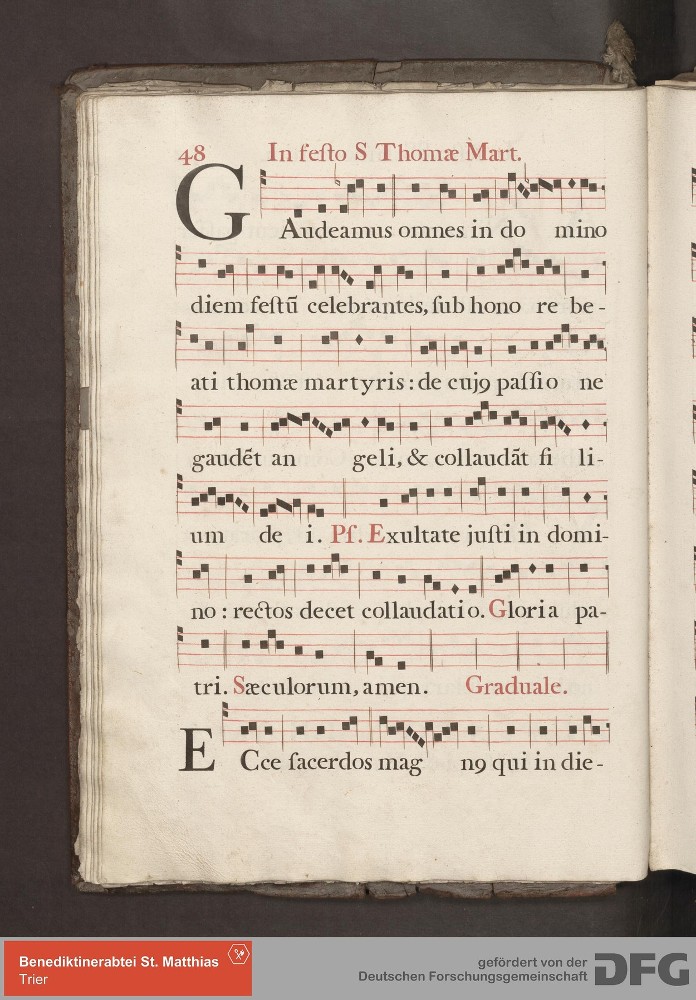 48 In feſto S Thomæ Mart.
GAudeamus omnes in do mino
diem feſtũ celebrantes, ſub hono re be-
ati thomæ martyris: de cujꝯ paſſio ne
gaudẽt an geli, & collaudãt fi li-
um de i. Pſ. Exultate juſti in domi-
no: rectos decet collaudatio. Gloria pa-
tri. Sæculorum, amen. Graduale.
ECce ſacerdos mag nꝯ qui in die-
Benediktinerabtei St. Matthias
Trier
gefördert von der
Deutschen Forschungsgemeinschaft
DFG